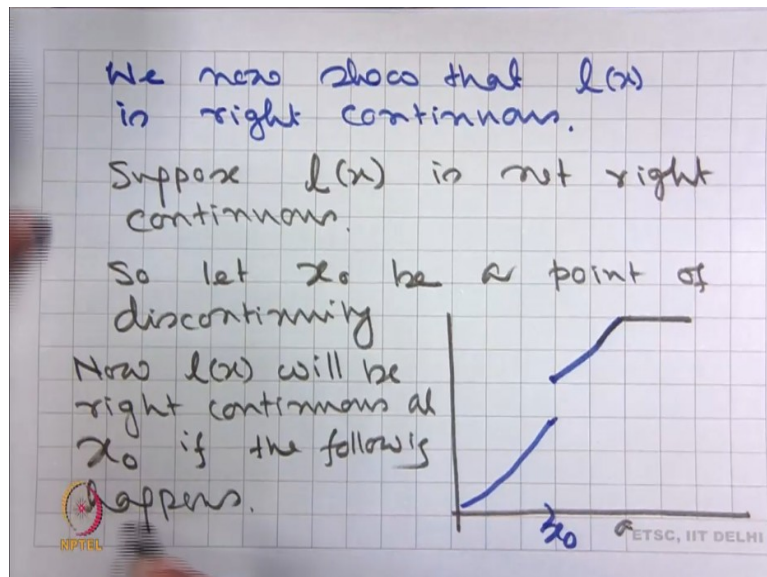 We now show that l(x)
is right continuous.
Suppose l(x) is not right
continuous.
So let x₀ be a point of
discontinuity
Now l(x) will be
right continuous at
x₀ if the followig
happens.
x₀ a
NPTEL
ETSC, IIT DELHI